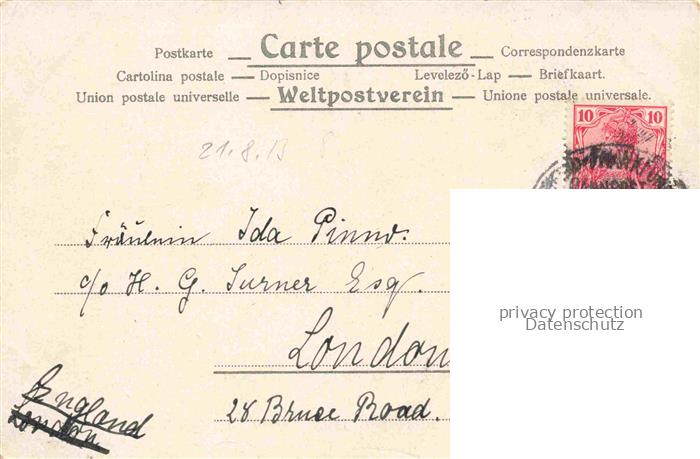 Carte postale
Postkarte — — Correspondenzkarte
Cartolina postale — Dopisnice Levelező-Lap — Briefkaart.
Union postale universelle — Weltpostverein — Unione postale universale.
10 10
21.8.
Fräulein Ida Pinno.
c/o H. G. Turner Esq.
London
28 Bruce Road.
England
London
privacy protection
Datenschutz